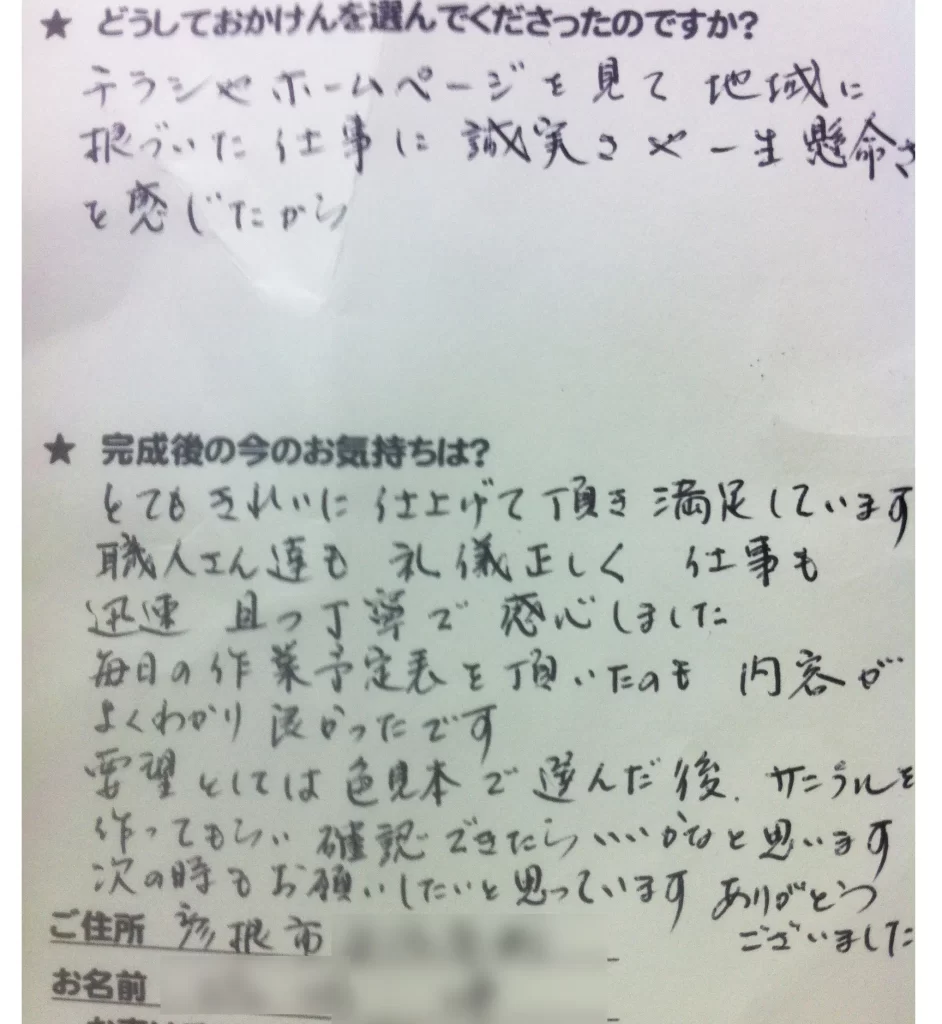 ★ どうしておかけんを選んでくださったのですか?
チラシやホームページを見て 地域に
根づいた 仕事に 誠実さや一生懸命さ
を感じたから
★ 完成後の今のお気持ちは?
とても きれいに 仕上げて 頂き 満足しています
職人さん達も 礼儀正しく 仕事も
迅速 且つ丁寧で 感心しました
毎日の作業予定表を頂いたのも 内容が
よくわかり 良かったです
要望としては色見本で選んだ後、サンプルを
作ってもらい 確認できたらいいかなと思います
次の時もお願いしたいと思っています ありがとう
ございました
ご住所 彦根市
お名前